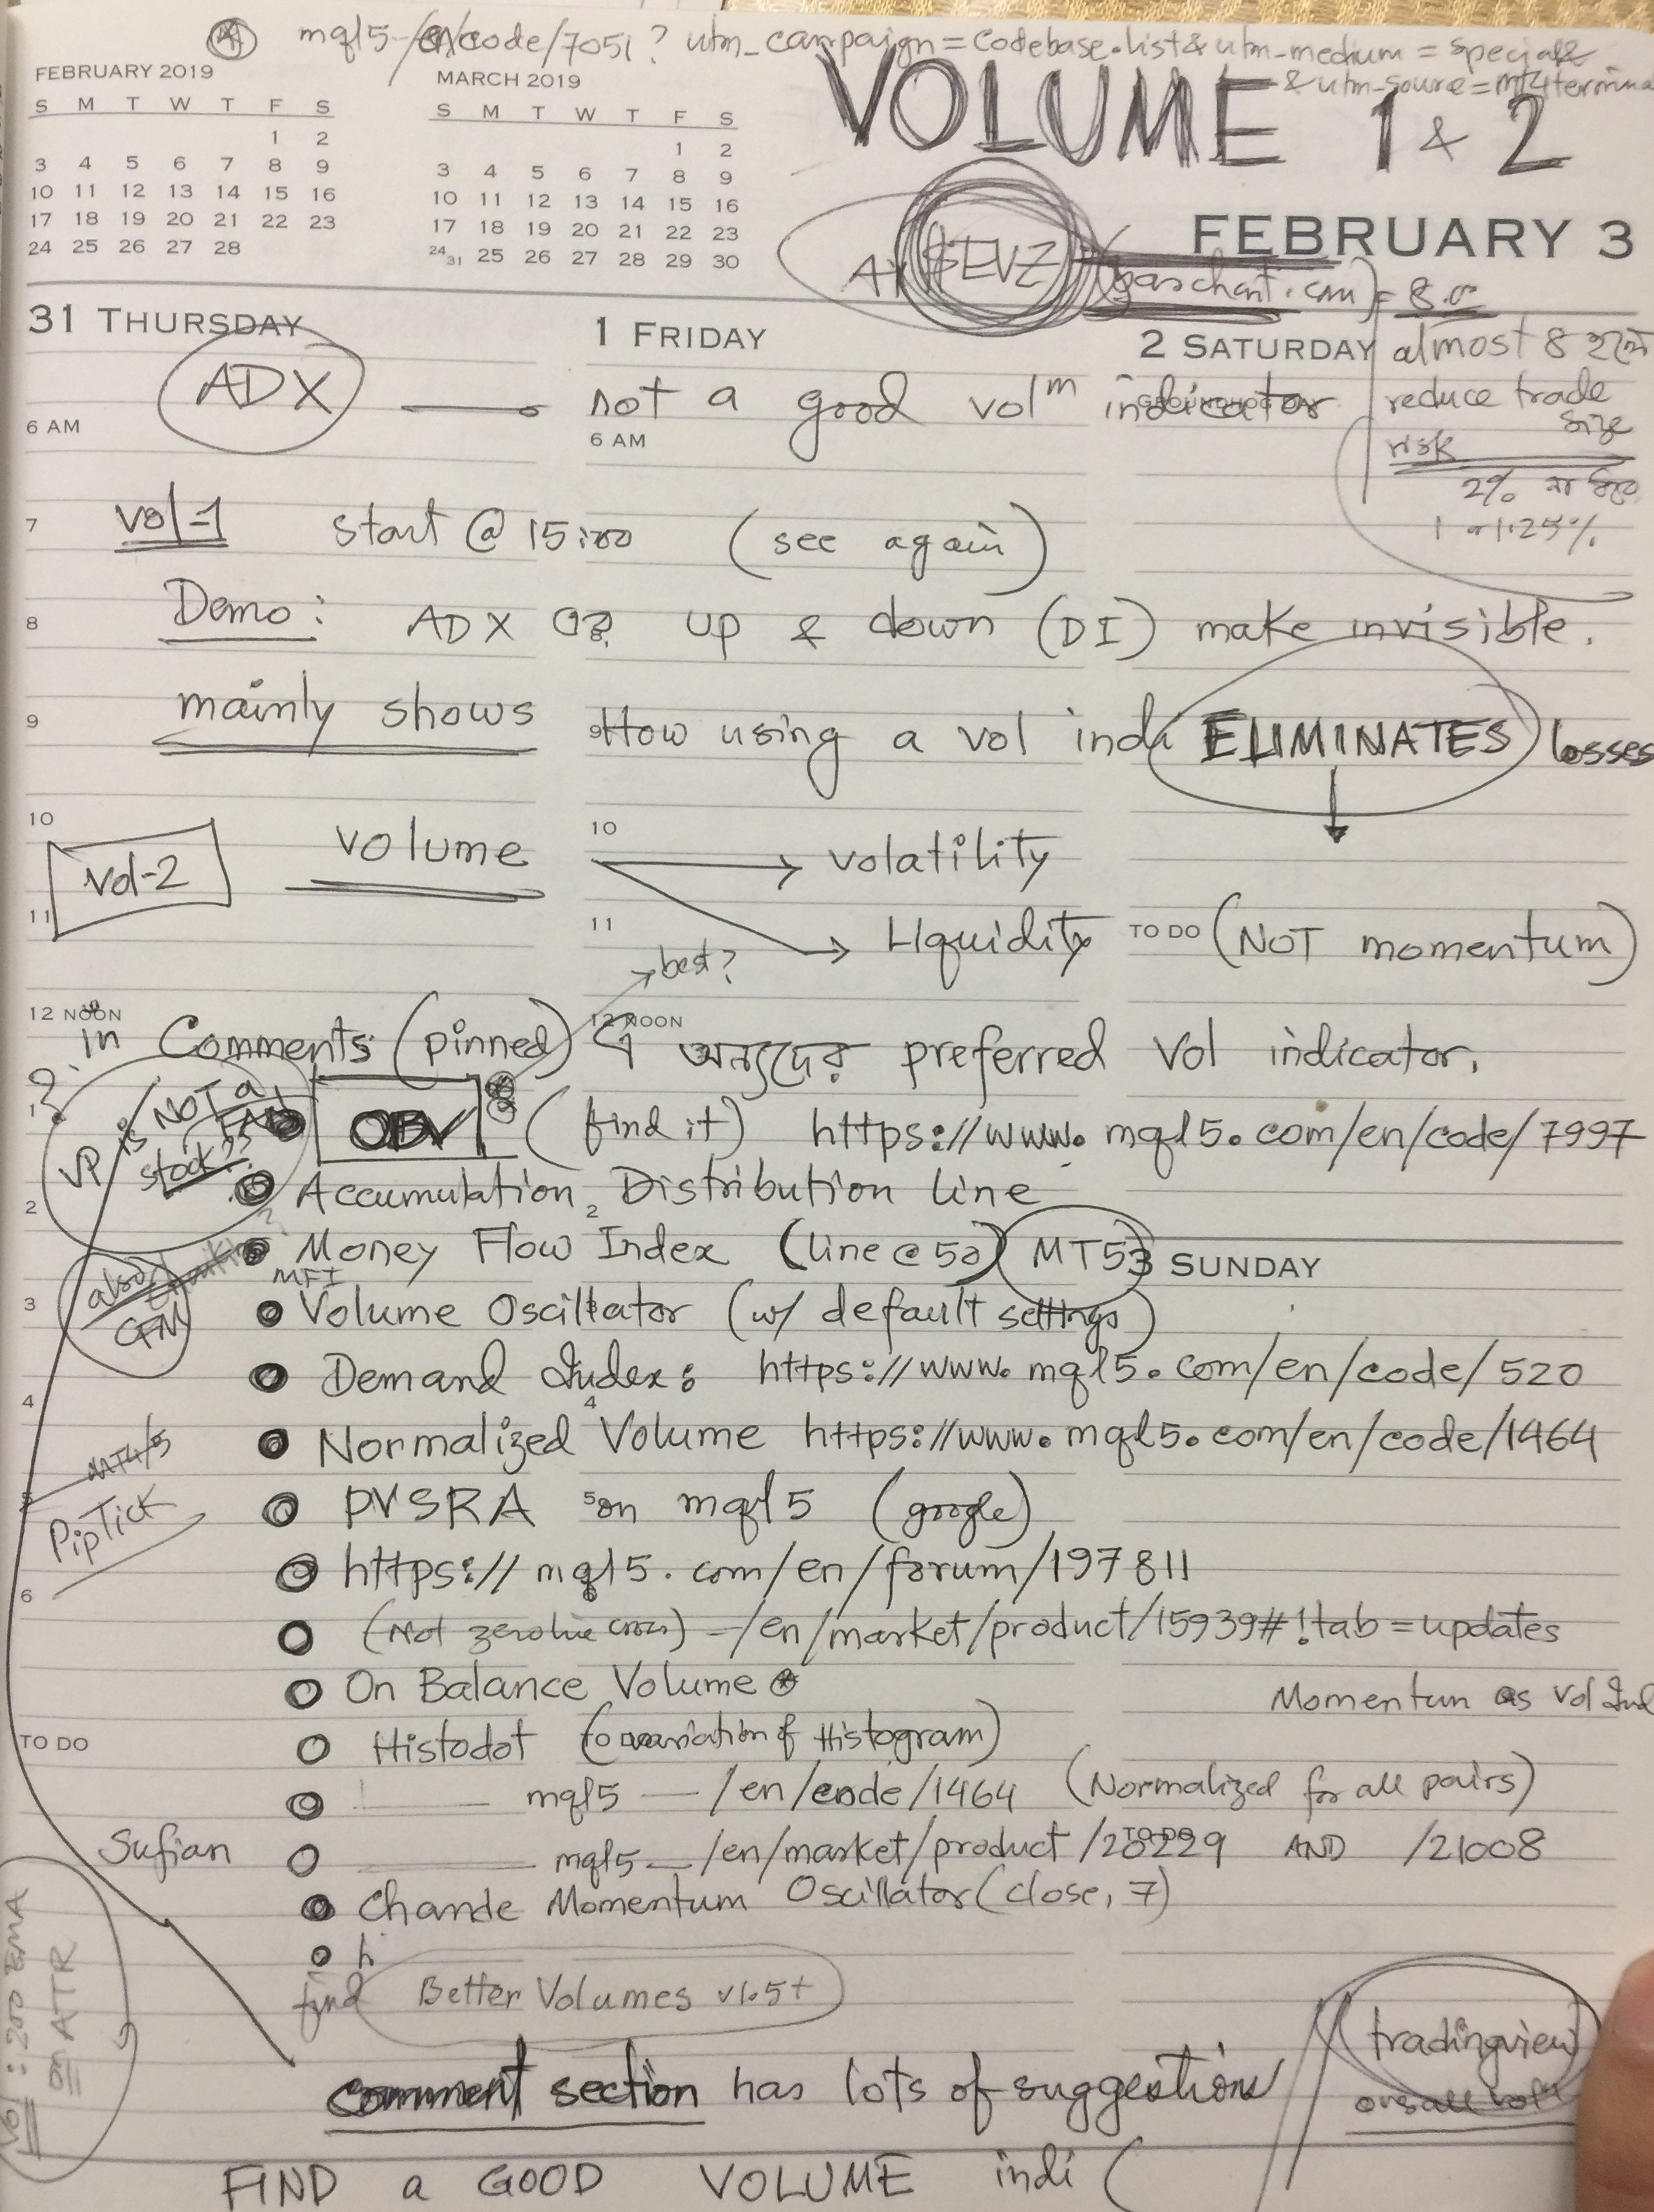 mql5-/en/code/7051? utm_campaign=codebase.list& utm_medium = special&
& utm_source=mt4terminal
FEBRUARY 2019
S M T W T F S
1 2
3 4 5 6 7 8 9
10 11 12 13 14 15 16
17 18 19 20 21 22 23
24 25 26 27 28
MARCH 2019
S M T W T F S
1 2
3 4 5 6 7 8 9
10 11 12 13 14 15 16
17 18 19 20 21 22 23
24 31 25 26 27 28 29 30
VOLUME 1 & 2
FEBRUARY 3
$EVZ (barchart.com) = 8.0
31 THURSDAY
1 FRIDAY
2 SATURDAY
almost 8 হলে
reduce trade
size
risk
2% না
1 or 1.25%
ADX
not a good volm indicator
6 AM
6 AM
7
vol-1 start @ 15:00 (see again)
8
Demo: ADX এর up & down (DI) make invisible.
9
mainly shows How using a vol indi ELIMINATES losses
10
10
vol-2 volume
volatility
11
11
Liquidity
TO DO
(NOT momentum)
best?
12 NOON
12 NOON
in Comments (pinned) এ অন্যদের preferred vol indicator.
VP is NOT a
stock??
OBV (find it) https://www.mql5.com/en/code/7997
2
2
Accumulation Distribution line
Money Flow Index (line @ 50) MT5
MFI
3 SUNDAY
also
CFM
3
Volume Oscillator (w/ default settings)
Demand Index: https://www.mql5.com/en/code/520
4
4
Normalized Volume https://www.mql5.com/en/code/1464
MT4/5
PipTick
5
5
PVSRA on mql5 (google)
6
https://mql5.com/en/forum/197811
(Not zeroline cross) -/en/market/product/15939#!tab=updates
On Balance Volume
Momentum as vol Ind
TO DO
Histodot (a variation of Histogram)
mql5 — /en/code/1464 (Normalized for all pairs)
TO DO
Sufian
mql5 — /en/market/product/20229 AND /21008
Chande Momentum Oscillator (close, 7)
h
find Better Volumes v1.5+
Vol : 200 EMA
on ATR
tradingview
comment section has lots of suggestions
FIND a GOOD VOLUME indi (